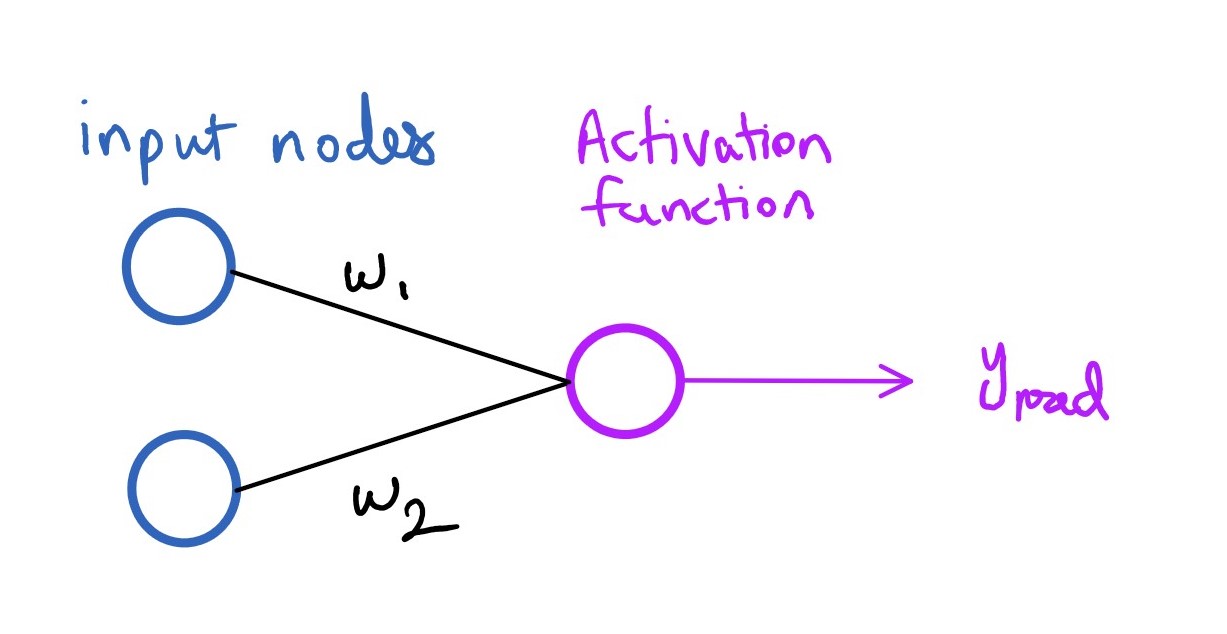 input nodes
Activation
function
w₁
y pred
w₂